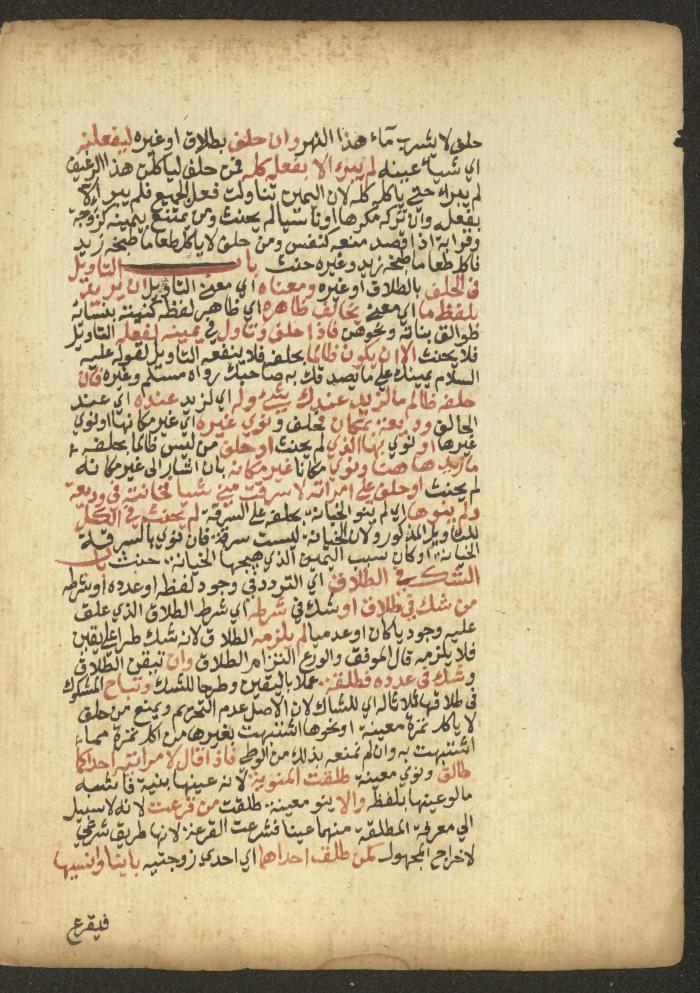 حلف لا شرب ماء هذا النهر وان حلف بطلاق او غيره ليفعلن
اي شيا عينه لم يبره الا بفعله كله فمن حلف لياكلن هذا الرغيف
لم يبرا حتى ياكله كله لان اليمين تناولت فعل الجميع فلم يبر الا
بفعله وان تركه مكرها او ناسيا لم يحنث ومن يمتنع بيمينه كزوجة
وقرابة اذا قصد منعه كنفس ومن حلف لا ياكل طعاما طبخه زيد
فاكل طعاما طبخه زيد وغيره حنث باب التاويل
في الحلف بالطلاق او غيره ومعناه اي معنى التاويل ان يريد
بلفظه ما اي معنى يخالف ظاهره اي ظاهر لفظه كنيته بنسائه
طوالق بناته ونحوهن فاذا حلف وتاول في يمينه نفعه التاويل
فلا يحنث الا ان يكون ظالما بحلفه فلا ينفعه التاويل لقوله عليه
السلام يمينك على ما يصدقك به صاحبك رواه مسلم وغيره فان
حلفه ظالم ما لزيد عندك شيء وله اي لزيد عنده اي عند
الحالف وديعة بمكان فحلف ونوى غيره اي غير مكانها او نوى
غيرها او نوى بما الذي لم يحنث او حلف من ليس ظالما بحلفه
ما زيد هاهنا ونوى مكانا غير مكانه بان اشار الى غير مكانه
لم يحنث او حلف على امراته لا سرقت مني شيا فخانته في وديعة
ولم ينوها اي لم ينو الخيانة بحلفه على السرقة لم يحنث في الكل
للتاويل المذكور ولان الخيانة ليست سرقة فان نوى بالسرقة
الخيانة او كان سبب اليمين الذي هيجها الخيانة حنث باب
الشك في الطلاق اي التردد في وجود لفظه او عدده او شرطه
من شك في طلاق او شك في شرطه اي شرط الطلاق الذي علق
عليه وجوديا كان او عدميا لم يلزمه الطلاق لانه شك طرا على يقين
فلا يلزمه قال الموفق والورع التزام الطلاق وان تيقن الطلاق
وشك في عدده فطلقة عملا باليقين وطرحا للشك وتباح المشكوك
في طلاقها ثلاثا له اي للشاك لان الاصل عدم التحريم ويمنع من حلف
لا ياكل تمرة معينة او نحوها اشتبهت بغيرها من اكل تمرة مما
اشتبهت به وان لم نمنعه بذلك من الوطي فاذا قال لامراتيه احداكما
طالق ونوى معينة طلقت المنوية لانه عينها بنية فاشبه
ما لو عينها بلفظه والا ينو معينة طلقت من قرعت لانه لا سبيل
الى معرفة المطلقة منهما عينا فشرعت القرعة لانها طريق شرعي
لاخراج المجهول كمن طلق احداهما اي احدى زوجتيه باينا وانسيها
فيقرع